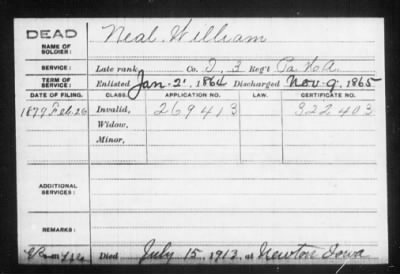 DEAD
NAME OF SOLDIER: Neal William
SERVICE: Late rank, Co. D, 3 Reg't Pa. H. A.
TERM OF SERVICE: Enlisted Jan. 2, 1864 Discharged Nov. 9, 1865
DATE OF FILING. CLASS. APPLICATION NO. LAW. CERTIFICATE NO.
1879 Feb. 26 Invalid, 269413 322403
Widow,
Minor,
ADDITIONAL SERVICES:
REMARKS:
Died July 15, 1913, at Newton Iowa